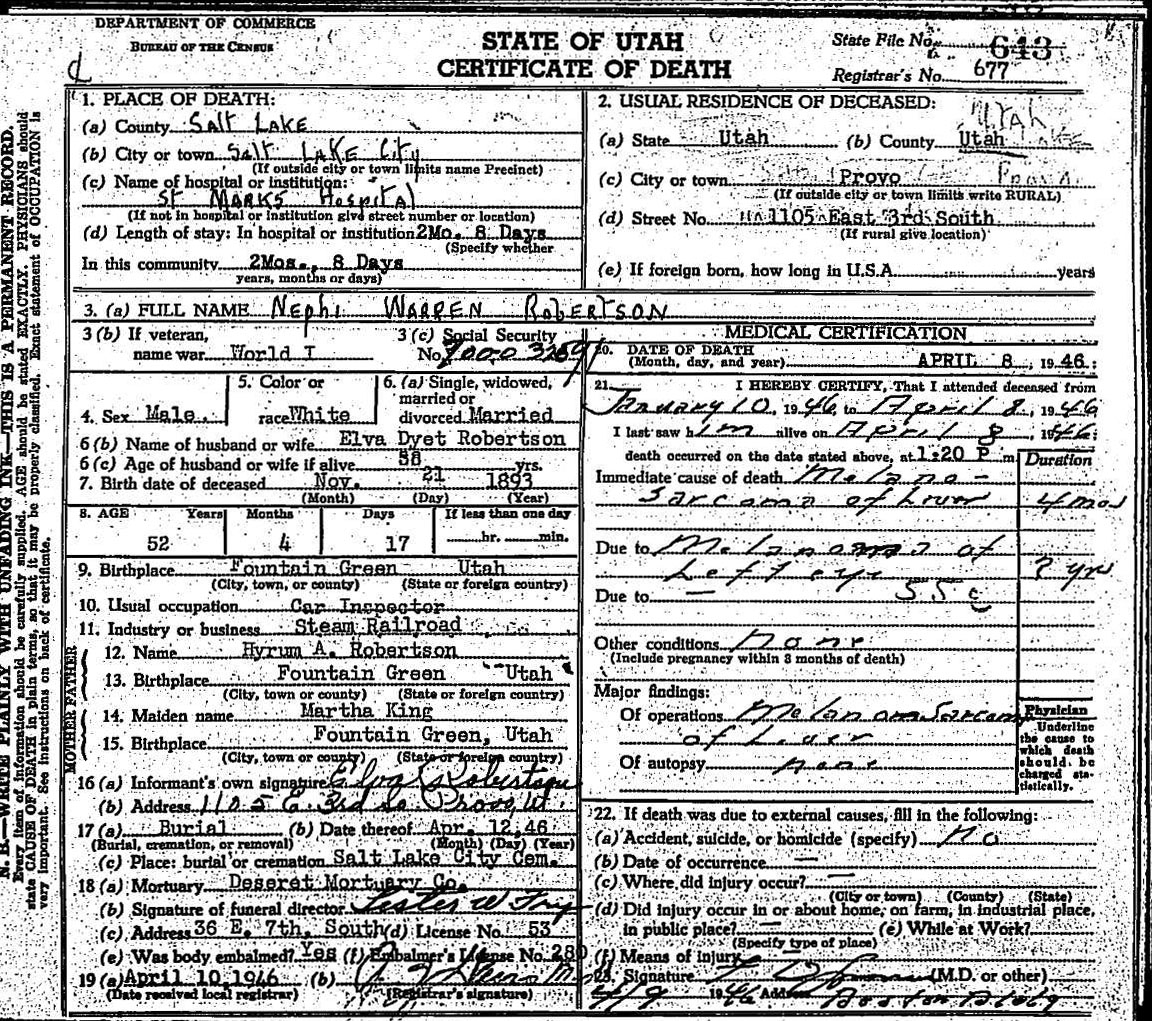 DEPARTMENT OF COMMERCE
BUREAU OF THE CENSUS
STATE OF UTAH
CERTIFICATE OF DEATH
State File No. 643
Registrar's No. 677
N. B.—WRITE PLAINLY WITH UNFADING INK—THIS IS A PERMANENT RECORD.
Every item of information should be carefully supplied. AGE should be stated EXACTLY. PHYSICIANS should
state CAUSE OF DEATH in plain terms, so that it may be properly classified. Exact statement of OCCUPATION is
very important. See instructions on back of certificate.
1. PLACE OF DEATH:
(a) County SALT LAKE
(b) City or town SALT LAKE CITY
(If outside city or town limits name Precinct)
(c) Name of hospital or institution:
ST MARKS HospitAl
(If not in hospital or institution give street number or location)
(d) Length of stay: In hospital or institution 2Mo. 8 Days
(Specify whether
In this community 2Mos., 8 Days
years, months or days)
2. USUAL RESIDENCE OF DECEASED:
UTAH
(a) State Utah (b) County Utah
(c) City or town Provo
(If outside city or town limits write RURAL)
(d) Street No. 1105 East 3rd South
(If rural give location)
(e) If foreign born, how long in U.S.A. years
3. (a) FULL NAME Nephi WARREN RobERTSON
3 (b) If veteran,
name war World I
3 (c) Social Security
No.
4. Sex Male.
5. Color or
race White
6. (a) Single, widowed,
married or
divorced Married
6 (b) Name of husband or wife Elva Dyet Robertson
6 (c) Age of husband or wife if alive 58 yrs.
7. Birth date of deceased Nov. 21 1893
(Month) (Day) (Year)
8. AGE Years Months Days If less than one day
52 4 17 hr. min.
9. Birthplace Fountain Green Utah
(City, town, or county) (State or foreign country)
10. Usual occupation Car Inspector
11. Industry or business Steam Railroad
FATHER
12. Name Hyrum A. Robertson
13. Birthplace Fountain Green Utah
(City, town or county) (State or foreign country)
MOTHER
14. Maiden name Martha King
15. Birthplace Fountain Green, Utah
(City, town or county) (State or foreign country)
16 (a) Informant's own signature Elva Robertson
(b) Address 1105 E. 3rd So. Provo, Ut.
17 (a) Burial (b) Date thereof Apr. 12,46
(Burial, cremation, or removal) (Month) (Day) (Year)
(c) Place: burial or cremation Salt Lake City Cem.
18 (a) Mortuary Deseret Mortuary Co.
(b) Signature of funeral director Lester W
(c) Address 36 E. 7th, South (d) License No. 53
(e) Was body embalmed? Yes (f) Embalmer's License No. 280
19 (a) April 10,1946 (b)
(Date received local registrar) (Registrar's signature)
MEDICAL CERTIFICATION
20. DATE OF DEATH
(Month, day, and year) APRIL 8, 1946.
21. I HEREBY CERTIFY, That I attended deceased from
January 10, 1946 to April 8, 1946
I last saw him alive on April 8, 1946;
death occurred on the date stated above, at 1:20 P m
Duration
Immediate cause of death Melano-
Sarcoma of Liver 4 mos
Due to Melanoma of
Left eye ? yrs
Due to — 55c
Other conditions None
(Include pregnancy within 3 months of death)
Major findings:
Of operations Melanom Sarcom
of Liver
Of autopsy none
Physician
Underline
the cause to
which death
should be
charged sta-
tistically.
22. If death was due to external causes, fill in the following:
(a) Accident, suicide, or homicide (specify) No
(b) Date of occurrence —
(c) Where did injury occur? —
(City or town) (County) (State)
(d) Did injury occur in or about home, on farm, in industrial place,
in public place? — (e) While at Work?
(Specify type of place)
(f) Means of injury
23. Signature (M.D. or other)
4/9 1946 Address Boston Bldg